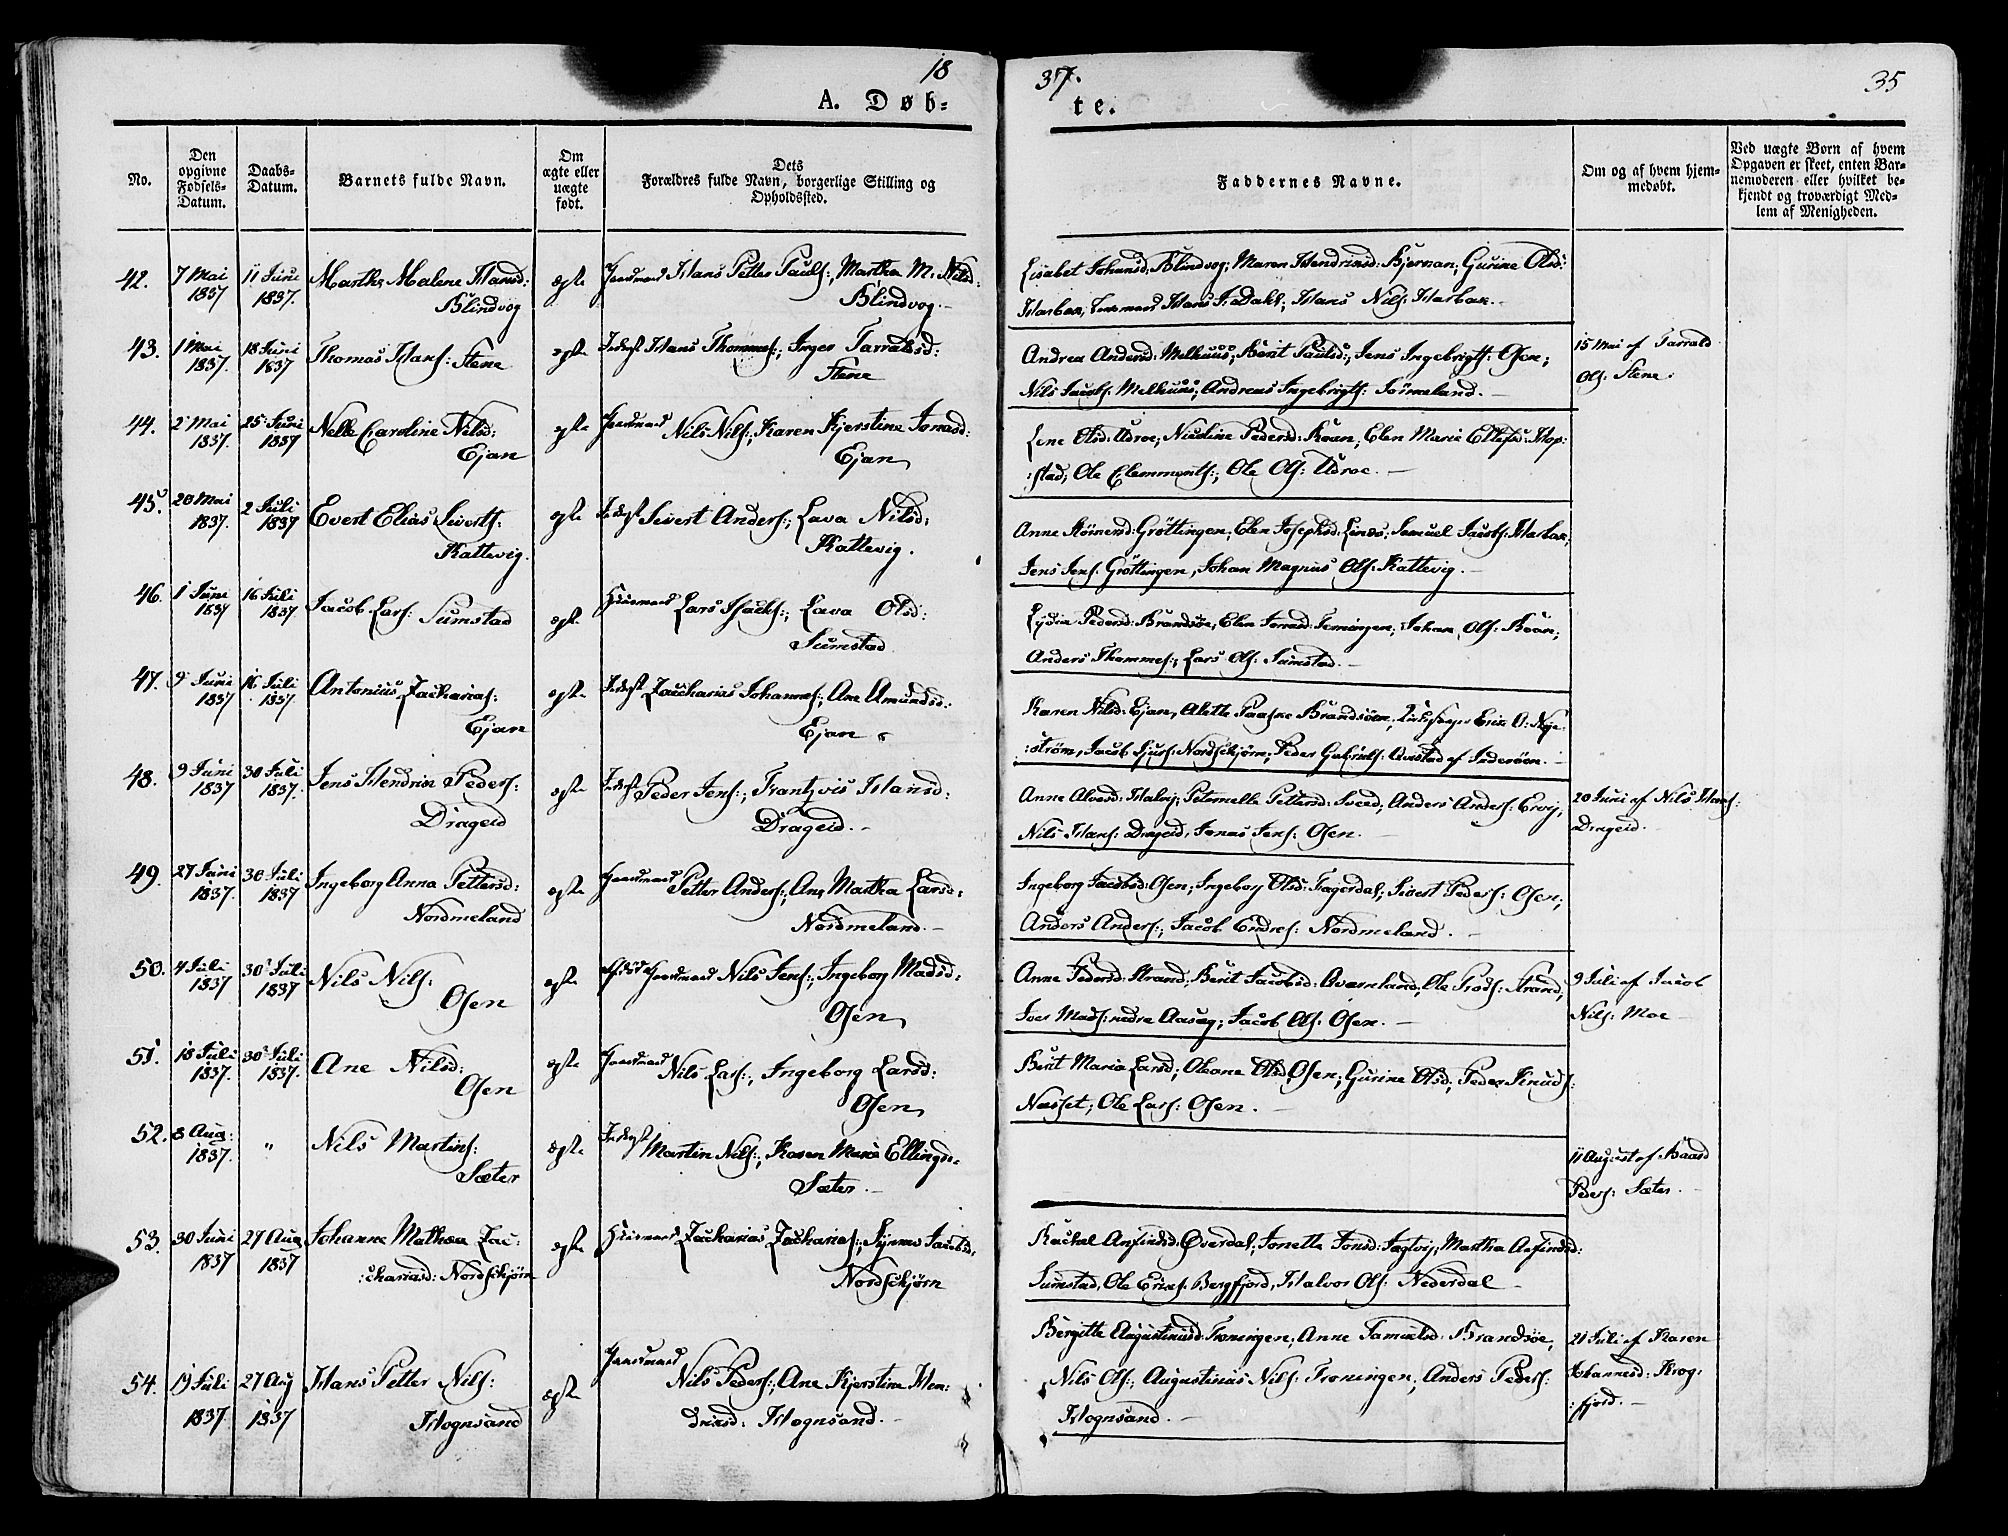 18
37.
35
A. Døb-
te.
No.
Den opgivne Fødsels-Datum.
Daabs-Datum.
Barnets fulde Navn.
Om ægte eller uægte født.
Dets Forældres fulde Navn, borgerlige Stilling og Opholdssted.
Faddernes Navne.
Om og af hvem hjemmedøbt.
Ved uægte Børn af hvem Opgaven er skeet, enten Barnemoderen eller hvilket bekjendt og troværdigt Medlem af Menigheden.
42. 7 Mai 1837 11 Juni 1837. Martha Malene Hansd: Blindvog ægte Gaardmand Hans Petter Pauls:, Martha M. Nilsd: Blindvog.
Lisabet Johansd, Blindvog; Maren Hendriksd: Bjørnan; Gurine Olsd:
Harbak, Hans Nils: Harbak.
43. 1 Mai 1837. 18 Juni 1837 Thomas Hans: Stene ægte Inderst Hans Thommes:, Inger Tarraldsd: Stene
Andrea Andersd: Melhuus; Berit Paulsd:; Jens Ingebrigts: Osen;
Nils Jacobs: Melhuus; Andreas Ingebrigts: Sørmeland.
15 Mai af Tarrald
Ols: Stene.
44. 2 Mai 1837. 25 Juni 1837 Nelle Caroline Nilsd: Ejan ægte Gaardmand Nils Nils:, Karen Kjerstine Jonasd: Ejan
Lene Olsd: Udroe; Nicoline Pedersd: Roan, Elen Marie Ellefsd: Hop:
:stad; Ole Clemments:; Ole Ols: Udroe.
45. 20 Mai 1837. 2 Juli 1837 Evert Elias Siverts: Kattevig. ægte Inderst Sivert Anders:, Lava Nilsd: Kattevig.
Anne Grøttingen; Elen Josephsd: Linds; Samuel Jacobs: Harbak;
Jens Jens: Grøttingen, Johan Magnus Ols: Kattevig.
46. 1 Juni 1837 16 Juli 1837. Jacob Lars: Sumstad ægte Huusmand Lars Isachs:, Lava Olsd: Sumstad
Lydia Pedersd: Brandsøe; Elen Johan Ols: Roan;
Anders Thommes:, Lars Ols: Sumstad.
47. 9 Juni 1837 16 Juli 1837. Antonius Zacharias: Ejan ægte Inderst Zaccharias Johannes:, Ane Amundsd: Ejan
Karen Nilsd: Ejan, Alette Paaske Brandsøen, Erik O: Nye
:strøm, Jacob Sjurs: Nordschjørn; Peder Gabriels: af Inderøen.
48. 9 Juni 1837 30 Juli 1837. Jens Hendrik Peders: Drageid ægte Inderst Peder Jens:, Frantzvis Hansd: Drageid.
Anne Petternelle Pettersd: Sveed; Anders Anders: Ervig;
Nils Hans: Drageid, Jonas Jens: Osen.
20 Juni af Nils Hans:
Drageid.
49. 27 Juni 1837. 30 Juli 1837 Ingeborg Anna Pettersd: Nordmeland ægte Gaardmand Petter Anders:, Ane Martha Larsd: Nordmeland.
Ingeborg Jacobsd: Osen; Ingeborg Olsd: Fagerdal; Sivert Peders: Osen;
Anders Anders:, Jacob Endres: Nordmeland.
50. 4 Juli 1837 30 Juli 1837 Nils Nils: Osen ægte Gaardmand Nils Jens:, Ingeborg Madsd: Osen
Anne Pedersd: Strand; Berit Jacobsd: Aværnland; Ole Strand;
Iver Mads: nedre Aaseg; Jacob Ols: Osen.
9 Juli af Jacob
Nils: Moe
51. 18 Juli 1837. 30 Juli 1837. Ane Nilsd: Osen ægte Gaardmand Nils Lars:, Ingeborg Larsd: Osen
Berit Maria Larsd; Oleane Olsd Osen; Gurine Olsd; Peder Knuds:
Næsset; Ole Lars: Osen.
52. 8 Aug: 1837. " Nils Martins: Sæter ægte Inderst Martin Nils:, Karen Marie Ellingsd: Sæter.
11 August af Baard
Peders: Sæter.
53. 30 Juni 1837 27 Aug 1837 Johanna Mathea Zac:
:chariasd: Nordschjørn ægte Huusmand Zacharias Zacharias:, Synnev Jacobsd: Nordschjørn
Rachel Anfindsd: Øverdal; Jonetta Jonsd: Jagtvig; Martha Anfindsd:
Sumstad, Ole Eriks: Bergfjord, Halvor Ols: Nederdal
54. 19 Juli 1837. 27 Aug 1837 Hans Petter Nils: Hognsand ægte Gaardmand Nils Peders:, Ane Kjerstine Hen:
driksd: Hognsand.
Bergitte Augustinusd: Froningen; Anne Brandsøe,
Nils Ols:, Augustinus Nils: Froningen, Anders Peders:
Hognsand.
21 Juli af Karen
Johannesd: Krog:
:fjord.